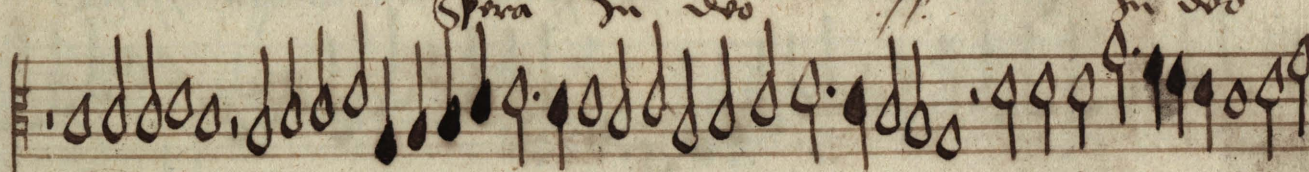 Spera In deo // In deo